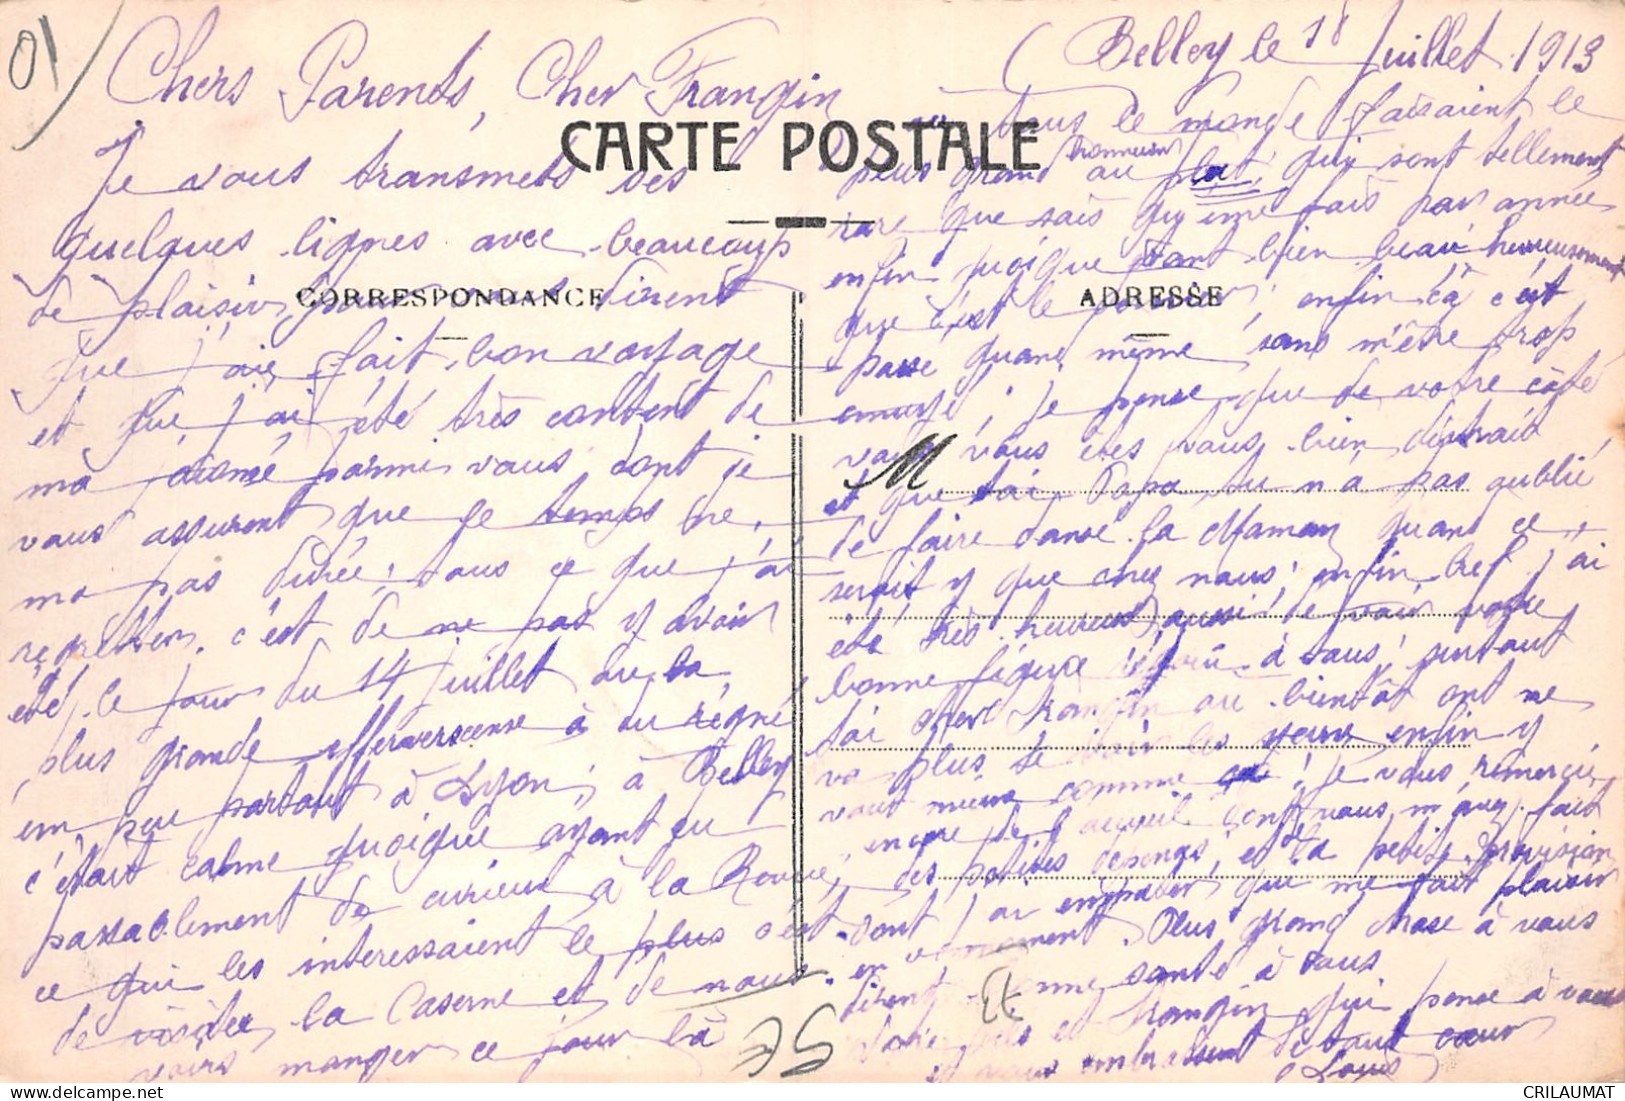 01
Belley le 18 Juillet 1913
Chers Parents, Cher Frangin
CARTE POSTALE
CORRESPONDANCE
ADRESSE
Je vous transmets ses
quelques lignes avec beaucoup
de plaisir, vous dirent
que j'aie fait bon voyage
et que j'ai été très content de
ma parmi vous, dont je
vous assurent que ce temps ne
ma pas durée; tous ce que j'ai
regretter, c'est de ne pas y avoir
été, le jour du 14 Juillet ou la
plus grande effervescense à du régné
un peu partout à Lyon; à Belley
c'était calme quoique ayant eu
passablement de curieux à la Revue,
ce qui les interessaient le plus c'est
de visiter la Caserne et de nous
voirs manger ce jour là
tous le monde faisaient le
plus grand honneur au plat, qui sont tellement
rare que sais qu'une fais par année
enfin quoique tant bien beau heureusement
que c'est le enfin çà c'est
passé quand même sans m'être trop
; je pense que de votre côté
vous vous êtes tous bien distrait
M
et que toi Papa tu n'a pas oublié
de faire danse la Maman quand ce
serait y que chez nous; enfin bref j'ai
été très heureux aussi de voir votre
bonne figure à tous; surtout
toi cher Frangin ou bientôt ont ne
va plus te voir les yeux enfin y
vaut mieux comme ça; je vous remercie
encore de l'acceuil dont vous m'avez fait
des petites et la petite provision
dont j'ai emporter que me fait plaisir
en venement. Plus grand chose à vous
dirent bonne santé à tous
Votre fils et Frangin qui pense à vous
et vous embrassent de tout cœur
Louis
CRILAUMAT